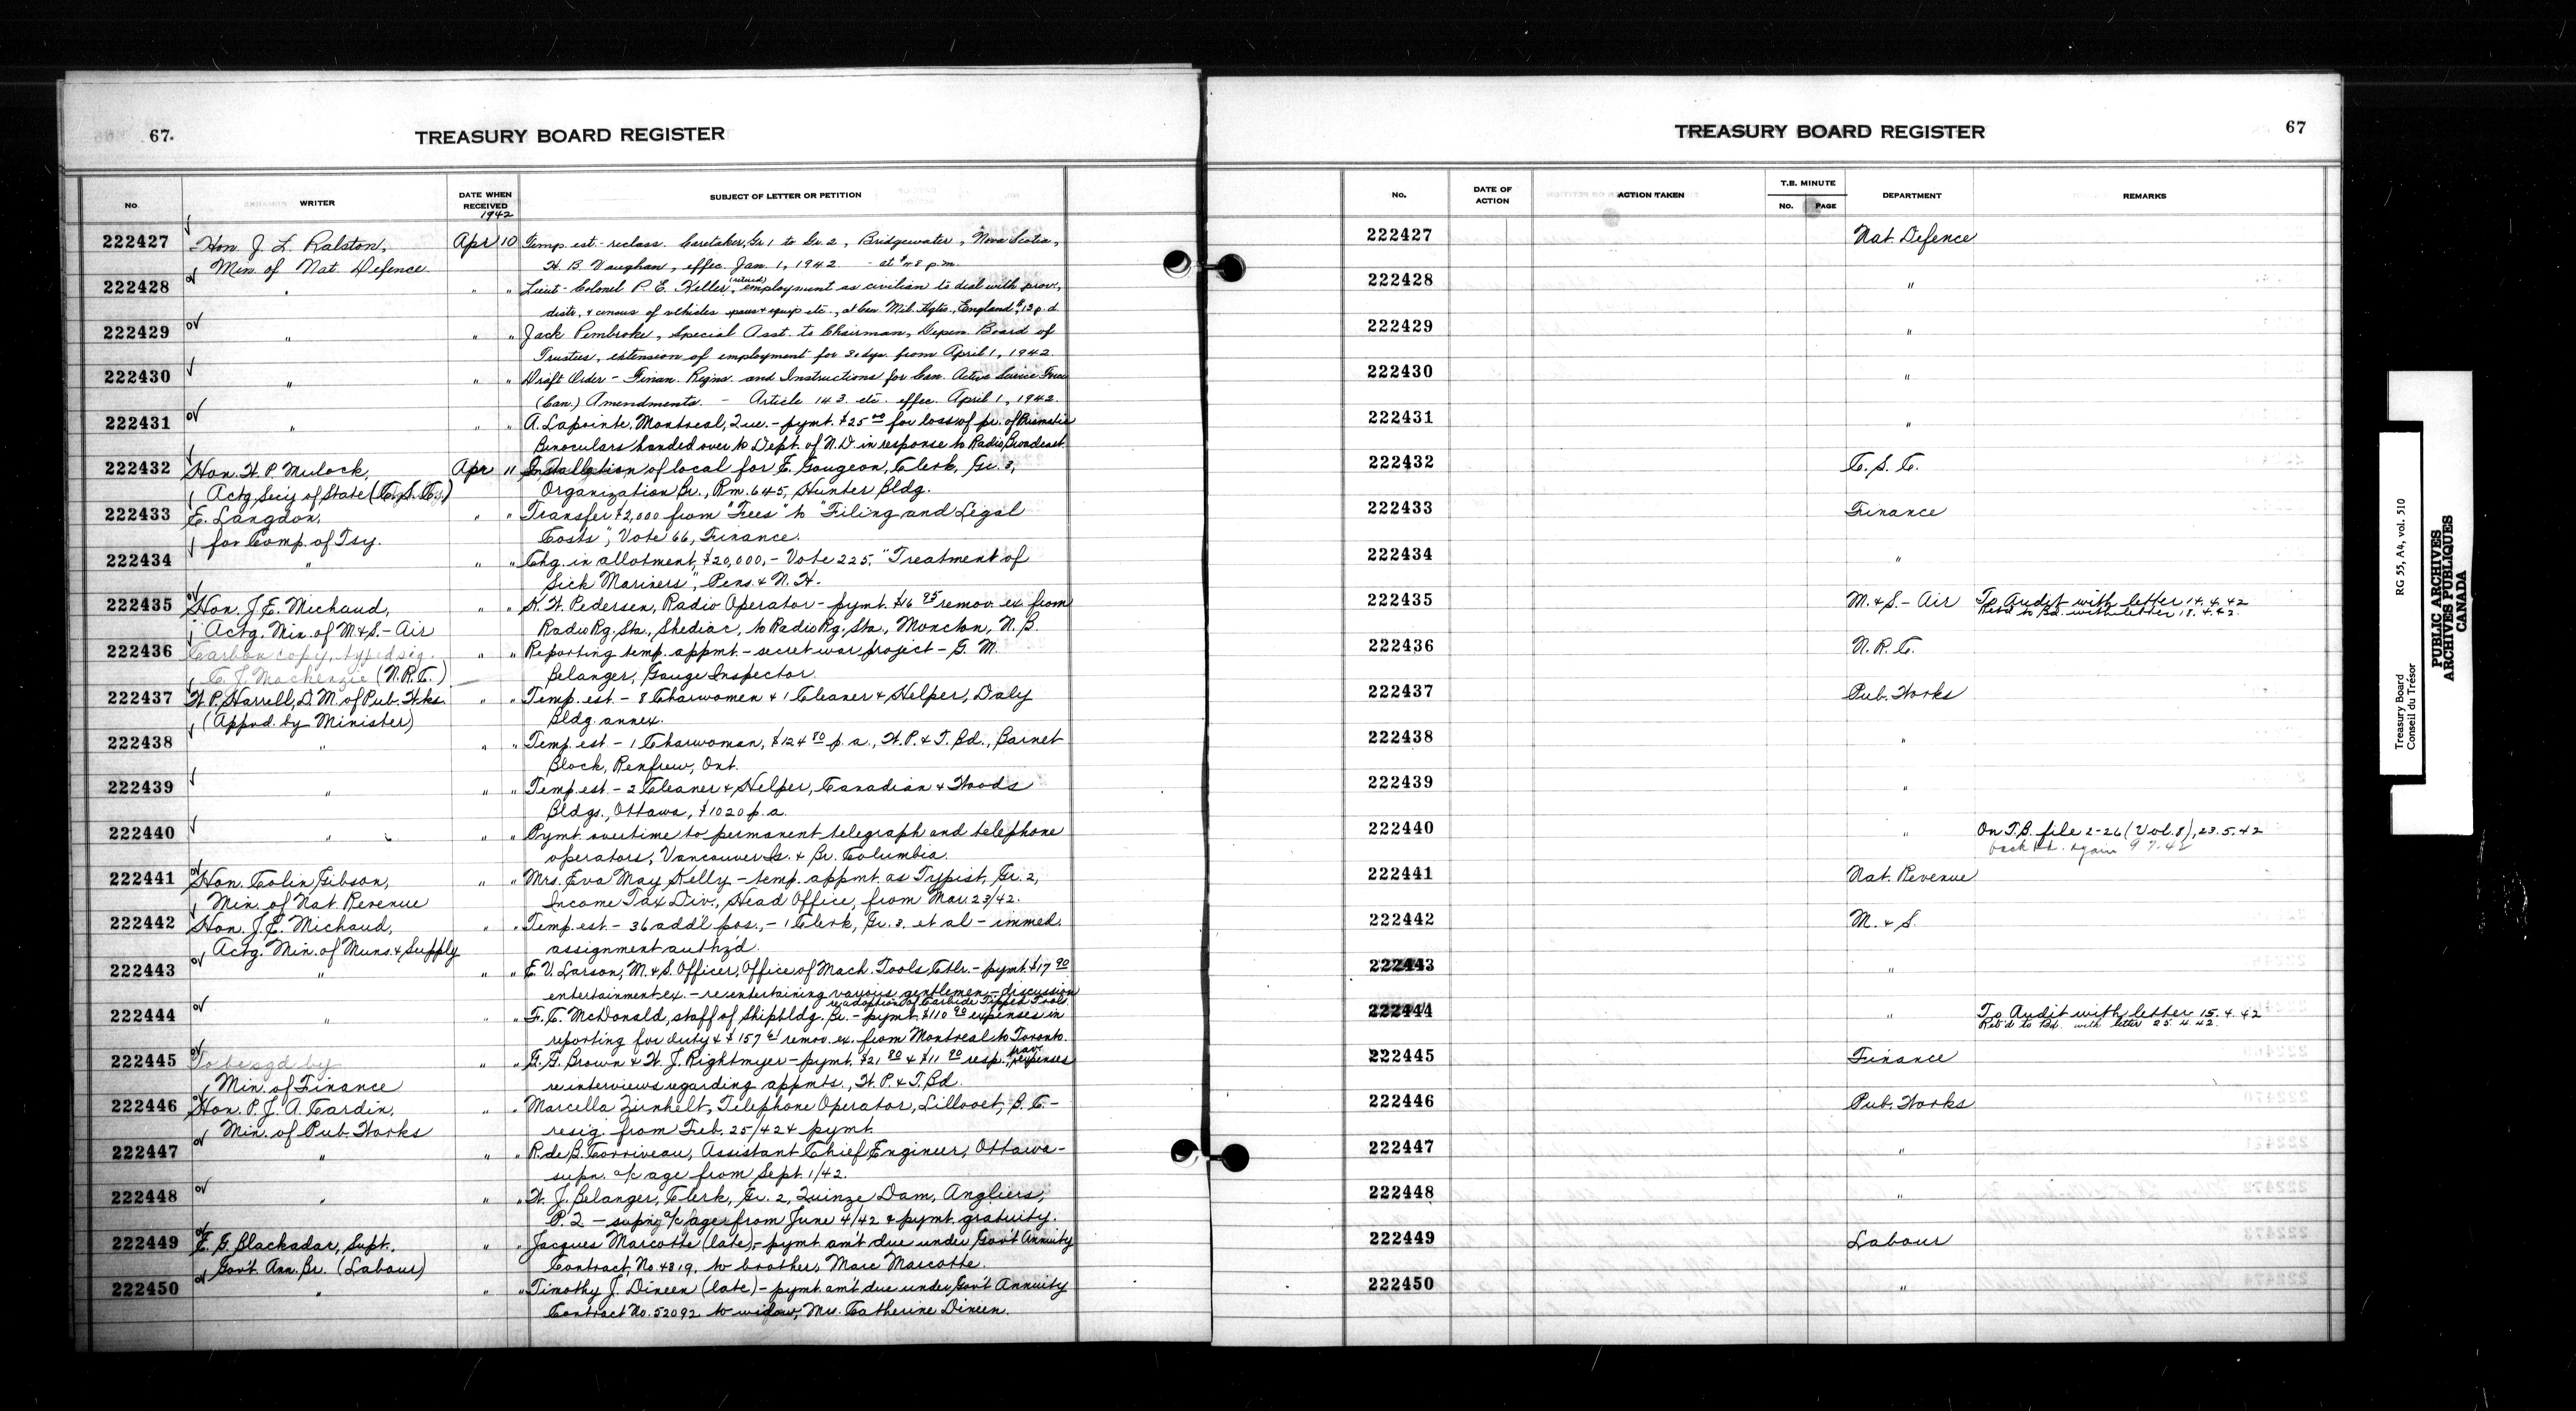 67.
TREASURY BOARD REGISTER
No. WRITER DATE WHEN RECEIVED SUBJECT OF LETTER OR PETITION
1942
222427 Hon. J. L. Ralston, Apr 10 Temp. est - reclass. Caretaker, Gr. 1 to Gr. 2, Bridgewater, Nova Scotia,
Min. of Nat. Defence H. B. Vaughan, effec. Jan. 1, 1942 - at p.m.
222428 " " " Lieut-Colonel P. E. Heller, (retired) employment as civilian to deal with prov.,
distr. & census of vehicles equip etc., at Can. Mil. Hqtrs., England, p.d.
222429 " " " Jack Pembroke, Special Asst. to Chairman, Depen. Board of
Trustees, extension of employment for dys. from April 1, 1942.
222430 " " " Draft Order - Finan. Regns. and Instructions for Can. Active Service Force
(Can.) Amendments. - Article 143 etc. effec. April 1, 1942.
222431 " " " A. Lapointe, Montreal, Que. - pymt. $25 00 for loss of pr. of Prismatic
Binoculars handed over to Dept. of N.D. in response to Radio Broadcast.
222432 Hon. W. P. Mulock, Apr 11 Installation of local for E. Gougeon, Clerk, Gr. 3,
Actg. Sec'y of State (C.S.C.) Organization Br., Rm. 645, Hunter Bldg.
222433 E. Langdon, " " Transfer $2,000 from "Fees" to "Filing and Legal
for Comp. of Tsy. Costs", Vote 66, Finance.
222434 " " " Chg. in allotment, $20,000, - Vote 225, "Treatment of
Sick Mariners", Pens. & N.H.
222435 Hon. J. E. Michaud, " " H. W. Pedersen, Radio Operator - pymt. $16 95 remov. ex from
Actg. Min. of M. & S. - Air Radio Rg. Sta., Shediac, to Radio Rg. Sta., Moncton, N.B.
222436 Carbon copy, typed sig. " " Reporting temp. appmt. - secret war project - G. M.
C. J. Mackenzie (N.R.C.) Belanger, Gauge Inspector.
222437 W. P. Harrell, D.M. of Pub. Wks. " " Temp. est - 8 Charwomen & 1 Cleaner & Helper, Daly
(Appvd. by Minister) Bldg. annex.
222438 " " " Temp. est - 1 Charwoman, $124 80 p.a., W.P. & T. Bd., Barnet
Block, Renfrew, Ont.
222439 " " " Temp. est. - 2 Cleaner & Helper, Canadian & Woods
Bldgs., Ottawa, $1020 p.a.
222440 " " " Pymt. overtime to permanent telegraph and telephone
operators, Vancouver Is. & Br. Columbia.
222441 Hon. Colin Gibson, " " Mrs. Eva May Kelly - temp. appmt. as Typist, Gr. 2,
Min. of Nat. Revenue Income Tax Div., Head Office, from Mar. 23/42.
222442 Hon. J. E. Michaud, " " Temp. est. - 36 add'l pos., - 1 Clerk, Gr. 3, et al - immed.
Actg. Min. of Muns. & Supply assignment authz'd.
222443 " " " E. V. Larson, M. & S. Officer, Office of Mach. Tools Ctlr. - pymt. $17 90
entertainment ex. - re entertaining various gentlemen - discussion
re adoption of Carbide Tipped Tools.
222444 " " " F. C. McDonald, staff of Shipbldg. Br. - pymt. $110 90 expenses in
reporting for duty & $157 61 remov. ex. from Montreal to Toronto.
222445 To be sgd by " " G. G. Brown & W. J. Rightmyer - pymt. $21 80 & $11 90 resp. trav. expenses
Min. of Finance re interviews regarding appmts., W.P. & T. Bd.
222446 Hon. P. J. A. Cardin, " " Marcella Zirnhelt, Telephone Operator, Lillooet, B.C. -
Min. of Pub. Works resig. from Feb. 25/42 & pymt.
222447 " " " R. de B. Corriveau, Assistant Chief Engineer, Ottawa -
supn. a/c age from Sept. 1/42.
222448 " " " W. J. Belanger, Clerk, Gr. 2, Quinze Dam, Angliers,
P.Q. - supn'g a/c age from June 4/42 & pymt. gratuity.
222449 E. G. Blackadar, Supt. " " Jacques Marcotte (late) - pymt. am't due under Gov't Annuity
Gov't. Ann. Br. (Labour) Contract, No. 4819, to brother, Marc Marcotte.
222450 " " " Timothy J. Dineen (late) - pymt. am't due under Gov't Annuity
Contract No. 52092 to widow, Mrs. Catherine Dineen.
TREASURY BOARD REGISTER
67
No. DATE OF ACTION ACTION TAKEN T.B. MINUTE No. PAGE DEPARTMENT REMARKS
222427 Nat. Defence
222428 "
222429 "
222430 "
222431 "
222432 C.S.C.
222433 Finance
222434 "
222435 M. & S. - Air To Audit with letter 14.4.42
Ret'd to Bd. with letter 18.4.42.
222436 N.R.C.
222437 Pub. Works
222438 "
222439 "
222440 " On T.B. file 2-26 (Vol. 8), 23.5.42
back again 9 7.42
222441 Nat. Revenue
222442 M. & S.
222443 "
222444 " To Audit with letter 15.4.42
Ret'd to Bd. with letter 25.4.42.
222445 Finance
222446 Pub. Works
222447 "
222448 "
222449 Labour
222450 "
Treasury Board RG 55, A4, vol. 510
Conseil du Trésor
PUBLIC ARCHIVES
ARCHIVES PUBLIQUES
CANADA